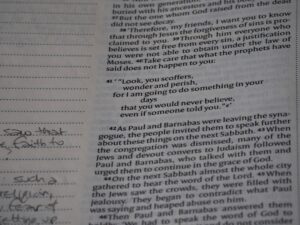 in his own generation
buried with his ancestors and his body
37 But the one whom God raised from the dead
did not see decay.
38 "Therefore, my friends, I want you to know
that through Jesus the forgiveness of sins is pro-
claimed to you. 39 Through him everyone who
believes is set free from every sin, a justification
you were not able to obtain under the law of
Moses. 40 Take care that what the prophets have
said does not happen to you:
41 " 'Look, you scoffers,
wonder and perish,
for I am going to do something in your
days
that you would never believe,
even if someone told you.'
42 As Paul and Barnabas were leaving the syna-
gogue, the people invited them to speak further
about these things on the next Sabbath. 43 When
the congregation was dismissed, many of the
Jews and devout converts to Judaism followed
Paul and Barnabas, who talked with them and
urged them to continue in the grace of God.
44 On the next Sabbath almost the whole city
gathered to hear the word of the Lord. 45 When
the Jews saw the crowds, they were filled with
jealousy. They began to contradict what Paul
was saying and heaped abuse on him.
46 Then Paul and Barnabas answered them
We had to speak the word of God to
do not consider
say that
faith to
such a